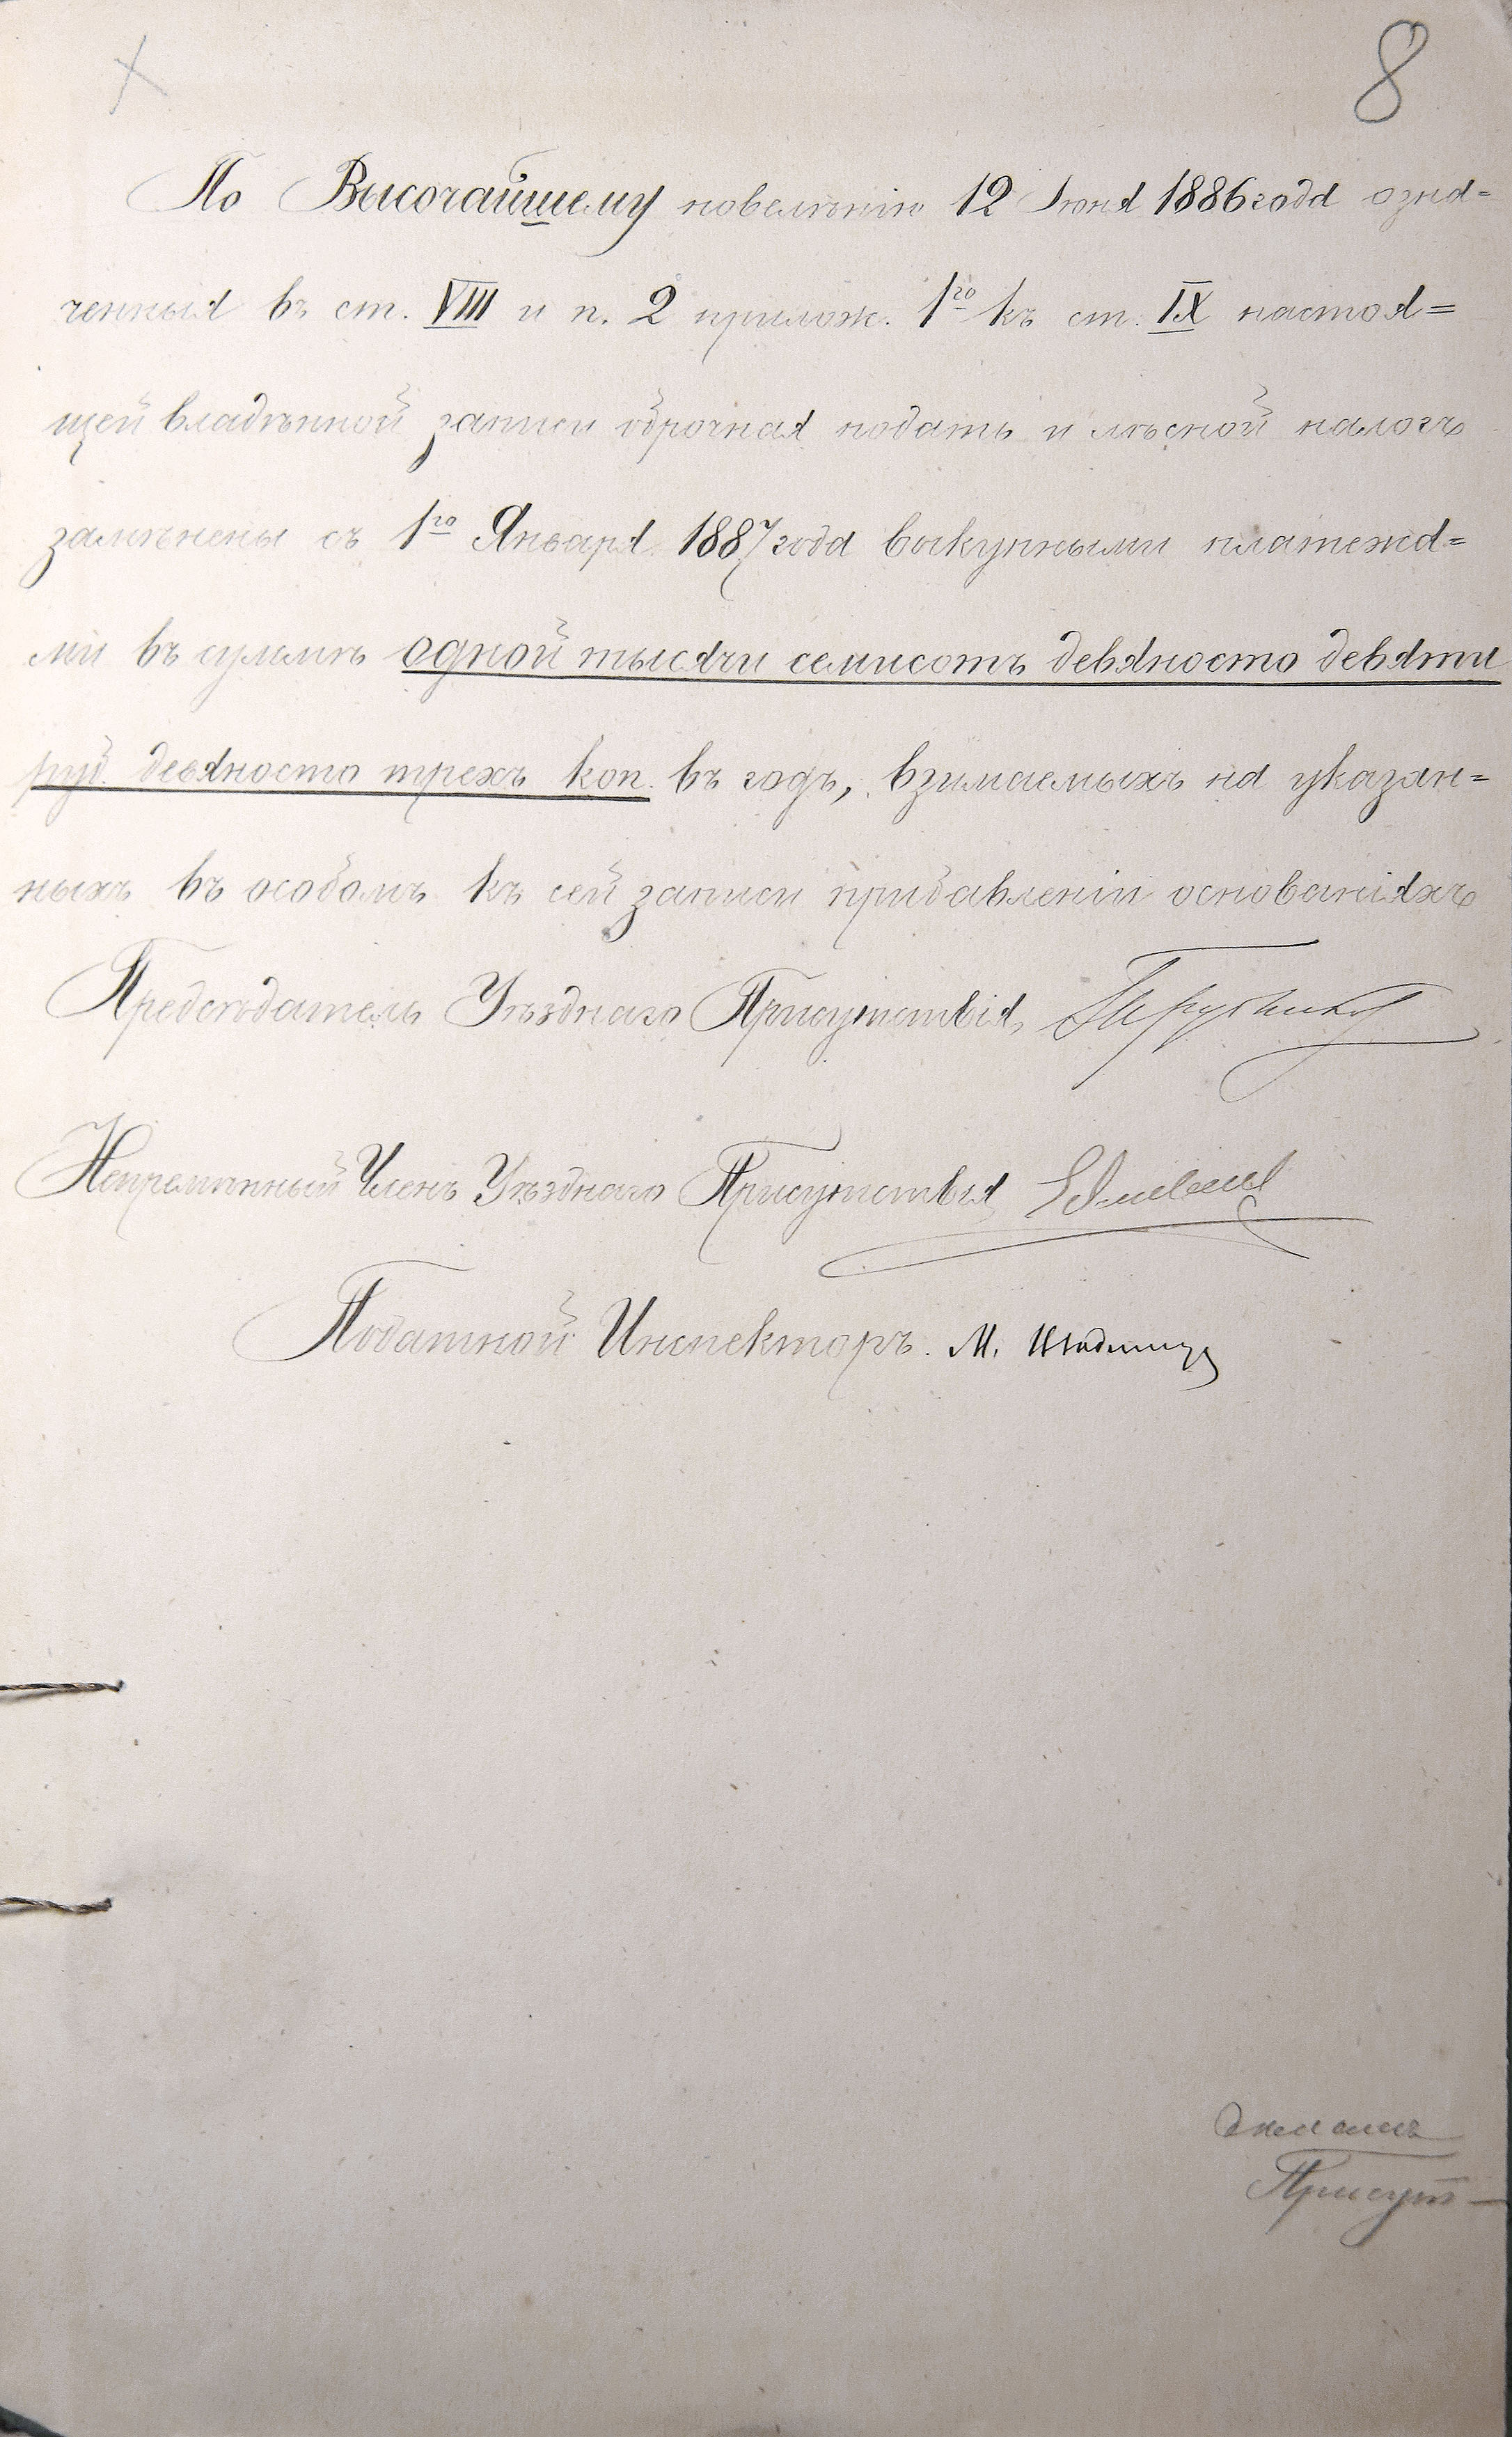 8
По Высочайшему повелѣнію 12 Іюня 1886 года озна=
ченныя въ ст. VIII и п. 2 прилож. 1го къ ст. IX настоя=
щей владѣнной записи оброчная подать и лѣсной налогъ
замѣнены съ 1го Января 1887 года выкупными платежа=
ми въ суммѣ одной тысячи семисотъ девяносто девяти
руб. девяносто трехъ коп. въ годъ, взимаемыхъ на указан=
ныхъ въ особомъ къ сей записи прибавленіи основаніяхъ
Предсѣдатель Уѣзднаго Присутствія,
Непремѣнный Членъ Уѣзднаго Присутствія
Податной Инспекторъ. М.
Присут